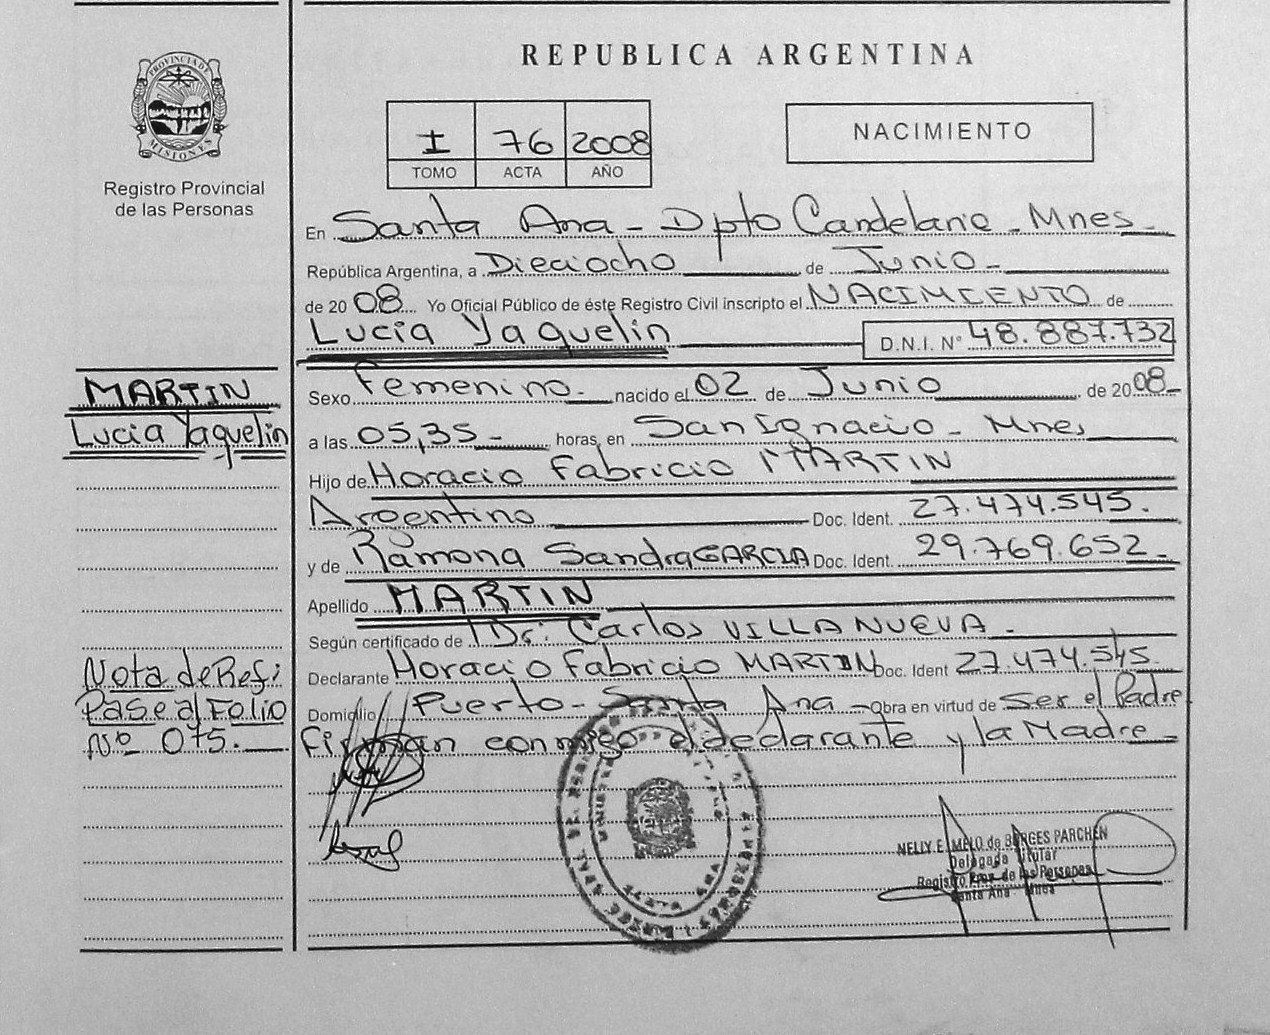 REPUBLICA ARGENTINA
PROVINCIA DE
MISIONES
Registro Provincial
de las Personas
I 76 2008
TOMO ACTA AÑO
NACIMIENTO
En Santa Ana - Dpto Candelaria - Mnes
República Argentina, a Dieciocho de Junio -
de 2008 Yo Oficial Público de éste Registro Civil inscripto el NACIMIENTO de
Lucia Yaquelin D.N.I. N° 48.887.732
Sexo Femenino nacido el 02 de Junio de 2008
a las 05,35 - horas, en San Ignacio - Mnes
Hijo de Horacio Fabricio MARTIN
Argentino Doc. Ident. 27.474.545.
y de Ramona Sandra GARCIA Doc. Ident. 29.769.652
Apellido MARTIN
Según certificado de Dr: Carlos VILLANUEVA -
Declarante Horacio Fabricio MARTIN Doc. Ident 27.474.545
Domicilio Puerto - Santa Ana - Obra en virtud de Ser el Padre
Firman conmigo el declarante y la Madre -
MARTIN
Lucia Yaquelin
Nota de Refi
Pase al Folio
Nº 075.
SANTA ANA
NELLY E. MELO de BORGES PARCHEN
Delegada Titular
Registro Prov. de las Personas
Santa Ana Mnes